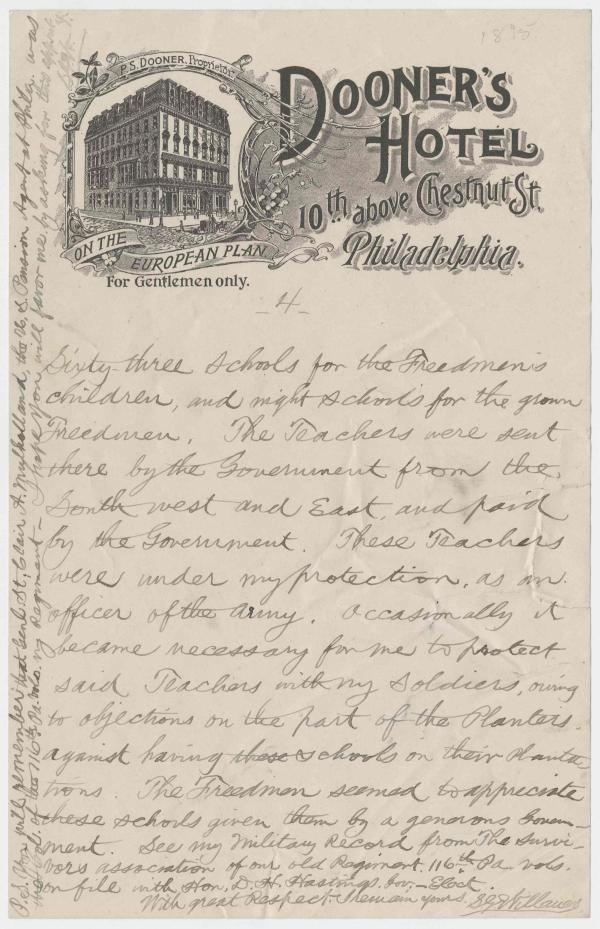 1895
P.S. DOONER, Proprietor.
DOONER'S
HOTEL
10th above Chestnut St.
Philadelphia.
ON THE
EUROPEAN PLAN
For Gentlemen only.
- 4 -
Sixty-three schools for the Freedmen's
children, and night schools for the grown
Freedmen. The Teachers were sent
there by the Government from the
South west and East, and paid
by the Government. These Teachers
were under my protection, as an
officer of the army. Occasionally it
became necessary for me to protect
said Teachers with my Soldiers, owing
to objections on the part of the Planters
against having these schools on their Planta-
tions. The Freedmen seemed to appreciate
these schools given them by a generous Govern-
ment. See my Military Record from The Survi-
vors association of our old Regiment. 116th Pa. vols.
on file with Hon. D. H. Hastings. Gov. - Elect.
With great Respect. I remain yours.
P.S. You will remember that Genl. St. Clair A. Mulholland, the U.S. Pension Agent at Phila. was
the Col. of the 116th Pa. vols. my Regiment - I hope you will favor me by asking for this